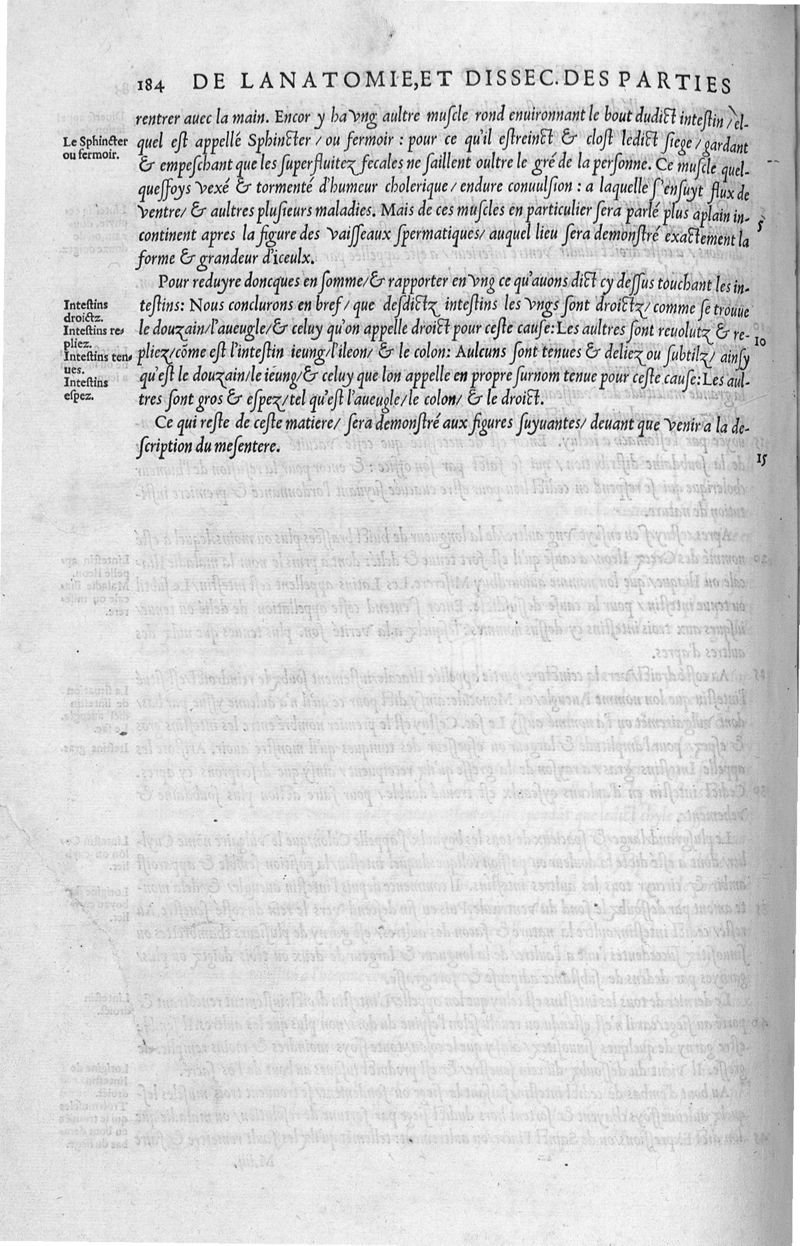 184 DE LANATOMIE, ET DISSEC. DES PARTIES
rentrer auec la main. Encor y ha vng aultre muscle rond enuironnant le bout dudict intestin / lel-
Le Sphincter
ou fermoir.
quel est appellé Sphincter / ou fermoir : pour ce qu'il estreinct & clost ledict siege / gardant
& empeschant que les superfluitez fecales ne saillent oultre le gré de la personne. Ce muscle quel-
quesfoys vexé & tormenté d'humeur cholerique / endure conuulsion : a laquelle s'ensuyt flux de
ventre / & aultres plusieurs maladies. Mais de ces muscles en particulier sera parlé plus aplain in-
5
continent apres la figure des vaisseaux spermatiques / auquel lieu sera demonstré exactement la
forme & grandeur d'iceulx.
Pour reduyre doncques en somme / & rapporter en vng ce qu'auons dict cy dessus touchant les in-
Intestins
droictz.
testins : Nous conclurons en bref / que desdictz intestins les vngs sont droictz / comme se trouue
Intestins re-
pliez.
le douzain / l'aueugle / & celuy qu'on appelle droict pour ceste cause : Les aultres sont reuolutz & re-
10
Intestins ten-
ues.
pliez / cõme est l'intestin ieung / l'ileon / & le colon : Aulcuns sont tenues & deliez ou subtilz / ainsy
Intestins
espez.
qu'est le douzain / le ieung / & celuy que lon appelle en propre surnom tenue pour ceste cause : Les aul-
tres sont gros & espez / tel qu'est l'aueugle / le colon / & le droict.
Ce qui reste de ceste matiere / sera demonstré aux figures suyuantes / deuant que venir a la de-
scription du mesentere.
15